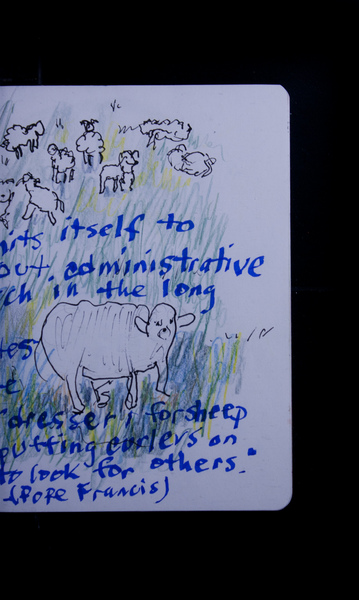 itself to
out administrative
in the long
dresser, for sheep
putting curlers on
to look for others."
(Pope Francis)